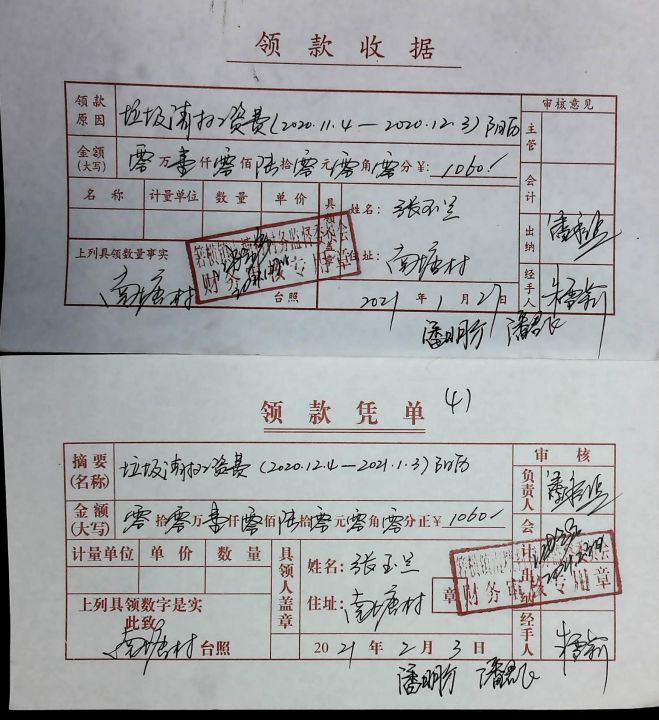 领款收据
领款原因 垃圾清扫工资费(2020.11.4—2020.12.3)阳历 审核意见
金额(大写) 零万壹仟零佰陆拾零元零角零分 ¥: 1060.- 主管
名称 计量单位 数量 单价 具领人盖章 姓名: 张玉兰 会计
住址: 南塘村 出纳
上列具领数量事实
南塘村 台照 2021年1月27日 经手人
财务审核专用章
潘明方
领款凭单 (4)
摘要(名称) 垃圾清扫工资费(2020.12.4—2021.1.3)阳历 审核
金额(大写) 零拾零万壹仟零佰陆拾零元零角零分正 ¥ 1060.- 负责人
计量单位 单价 数量 具领人盖章 姓名: 张玉兰 会计
住址: 南塘村 章 出纳
财务审核专用章
上列具领数字是实
此致
南塘村 台照 2021年2月3日 经手人
潘明方